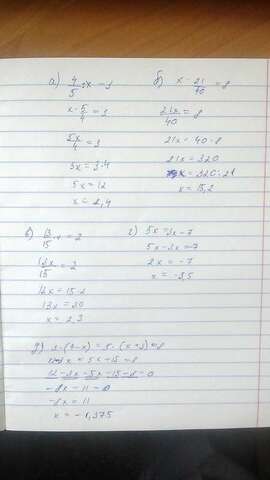 а) 4/5 : x = 1
x · 5/4 = 1
5x/4 = 1
5x = 3 · 4
5x = 12
x = 2,4
б) x · 21/40 = 8
21x/40 = 8
21x = 40 · 8
21x = 320
x = 320 : 21
x = 15,2
в) 13/15 · x = 2
13x/15 = 2
13x = 15 · 2
13x = 30
x = 2,3
г) 5x = 3x - 7
5x - 3x = -7
2x = -7
x = -3,5
12 - 3x - 5x - 15 - 8 = 0
-8x - 11 = 0
-8x = 11
x = -1,375